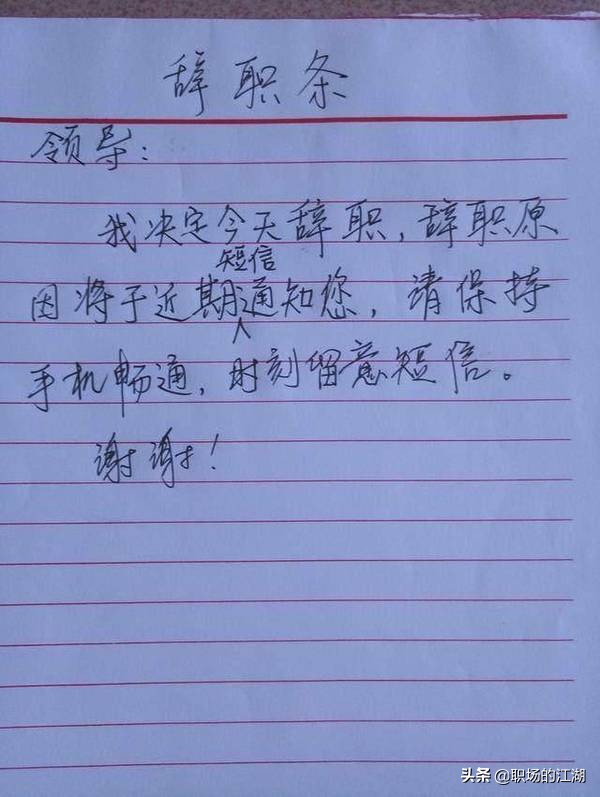 辞职条
领导：
我决定今天辞职，辞职原
因将于近期短信通知您，请保持
手机畅通，时刻留意短信。
谢谢！
头条 @职场的江湖